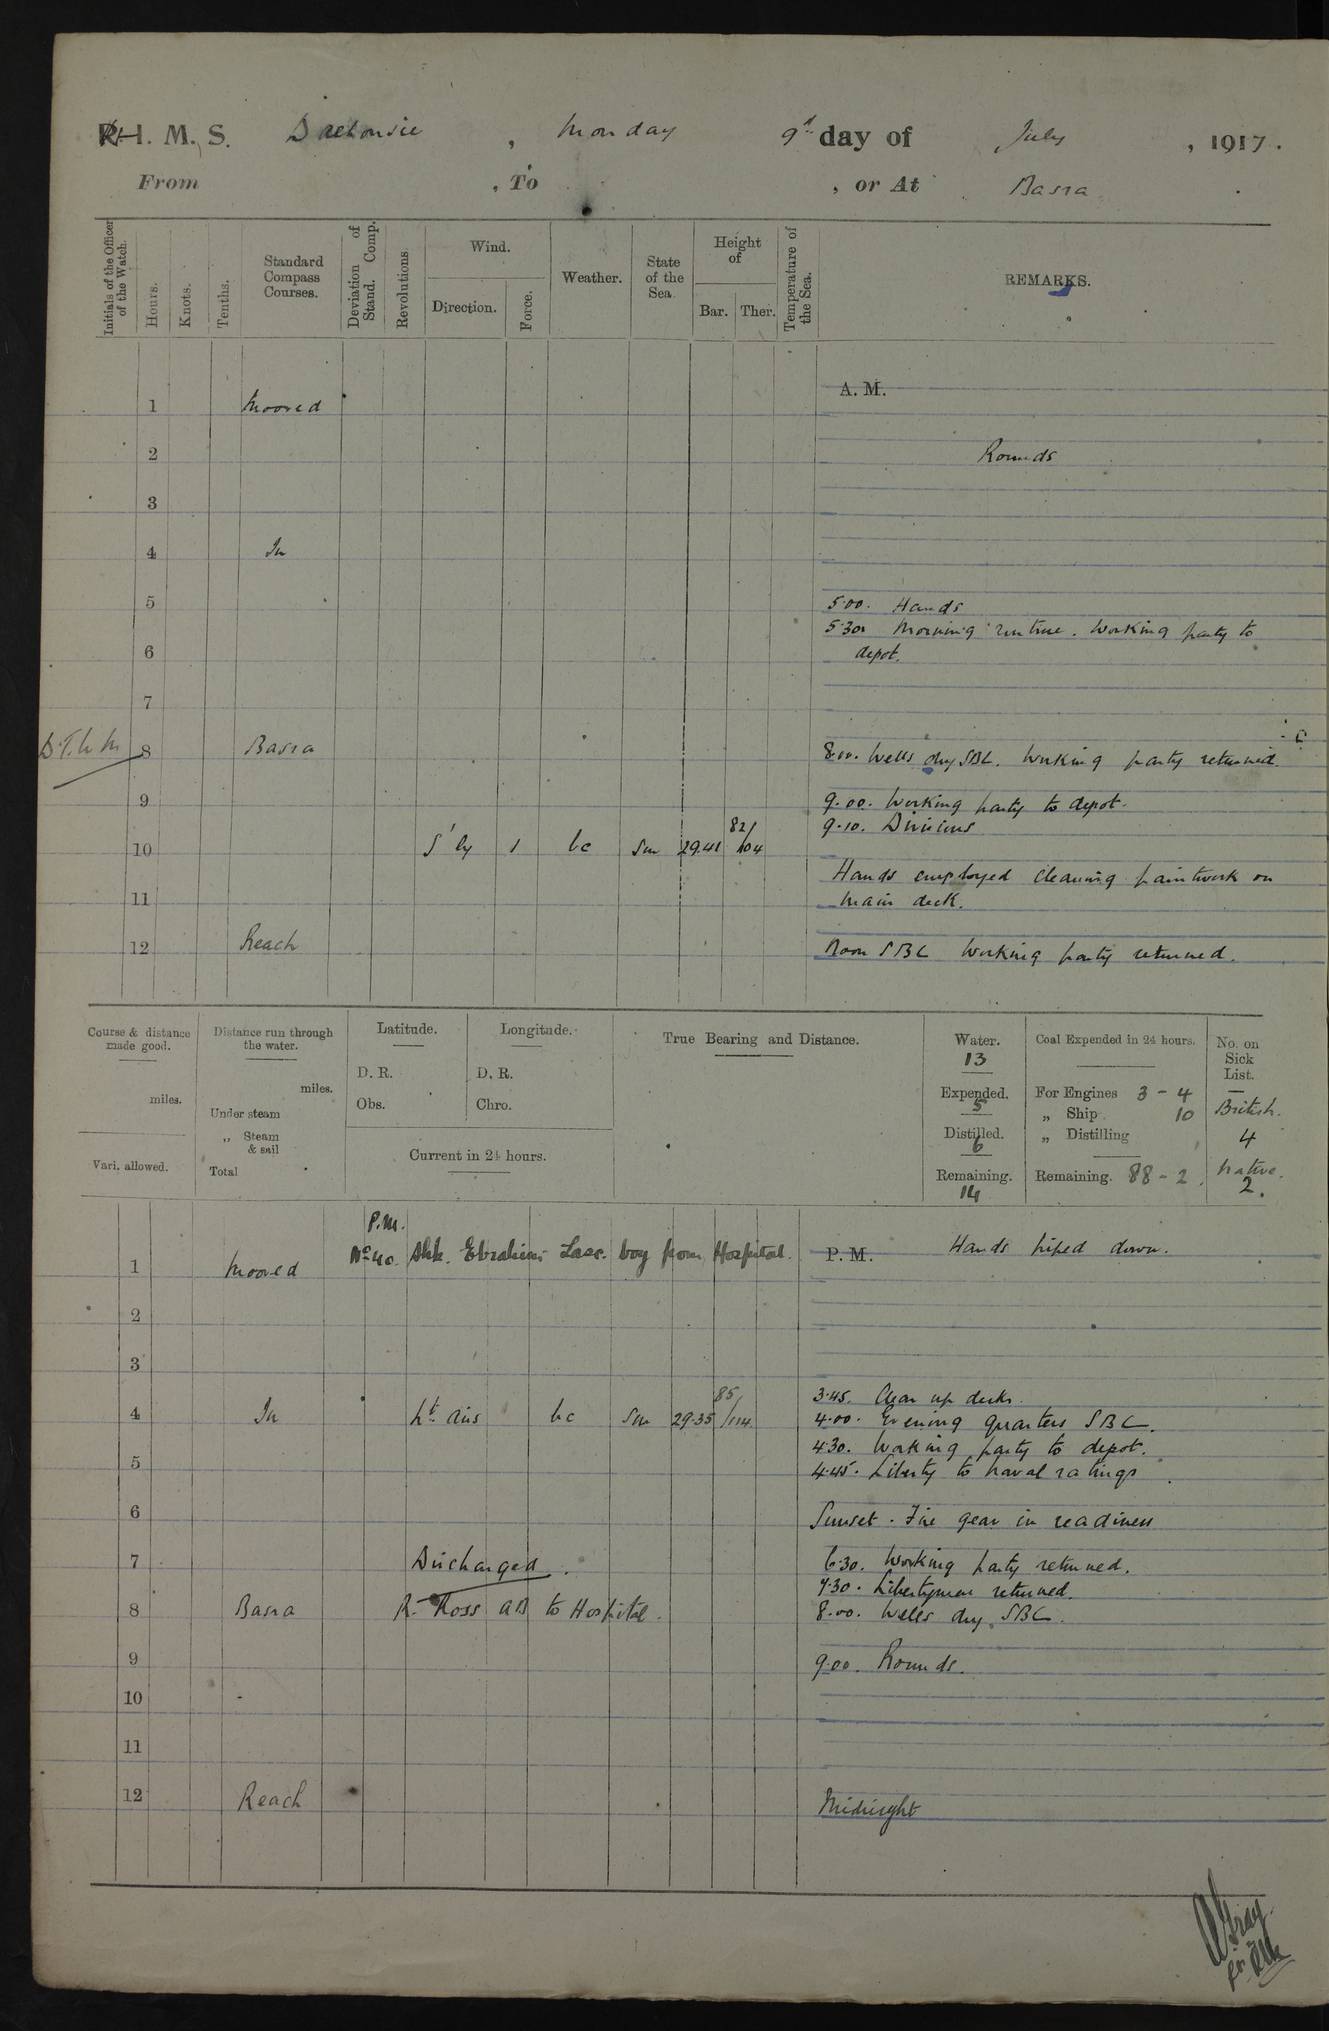 R. I. M. S. Dalhousie, Monday 9th day of July, 1917.
From , To , or At Basra
Initials of the Officer of the Watch.
Hours.
Knots.
Tenths.
Standard Compass Courses.
Deviation of Stand. Comp.
Revolutions.
Wind.
Direction.
Force.
Weather.
State of the Sea.
Height of
Bar.
Ther.
Temperature of the Sea.
REMARKS.
A. M.
1 Moored
2 Rounds
3
4 In
5 5.00. Hands
5.30 Morning routine. Working party to
6 depot.
7
8 Basra 8.00. Wells dry SBC. Working party returned.
9 9.00. Working party to depot.
9.10. Divisions
10 S'ly 1 bc Sm 29.41 82/104
Hands employed cleaning paintwork on
11 main deck.
12 Reach Noon SBC Working party returned.
Course & distance made good.
miles.
Vari. allowed.
Distance run through the water.
miles.
Under steam
„ Steam & sail
Total
Latitude.
D. R.
Obs.
Longitude.
D. R.
Chro.
Current in 24 hours.
True Bearing and Distance.
Water.
13
Expended.
5
Distilled.
6
Remaining.
14
Coal Expended in 24 hours.
For Engines 3 - 4
„ Ship 10
„ Distilling
Remaining. 88 - 2
No. on Sick List.
British.
4
Native.
2.
P.M.
No 40. Shk. Ebrahim Lasc. boy from Hospital.
P. M. Hands piped down.
1 Moored
2
3
3.45. Clear up decks.
4 In Lt. airs bc Sm 29.35 85/114 4.00. Evening quarters SBC.
4.30. Working party to depot.
5 4.45. Liberty to naval ratings
6 Sunset. Fire gear in readiness
7 Discharged. 6.30. Working party returned.
7.30. Libertymen returned.
8 Basra R. Ross AB to Hospital. 8.00. Wells dry. SBC.
9 9.00. Rounds.
10
11
12 Reach Midnight